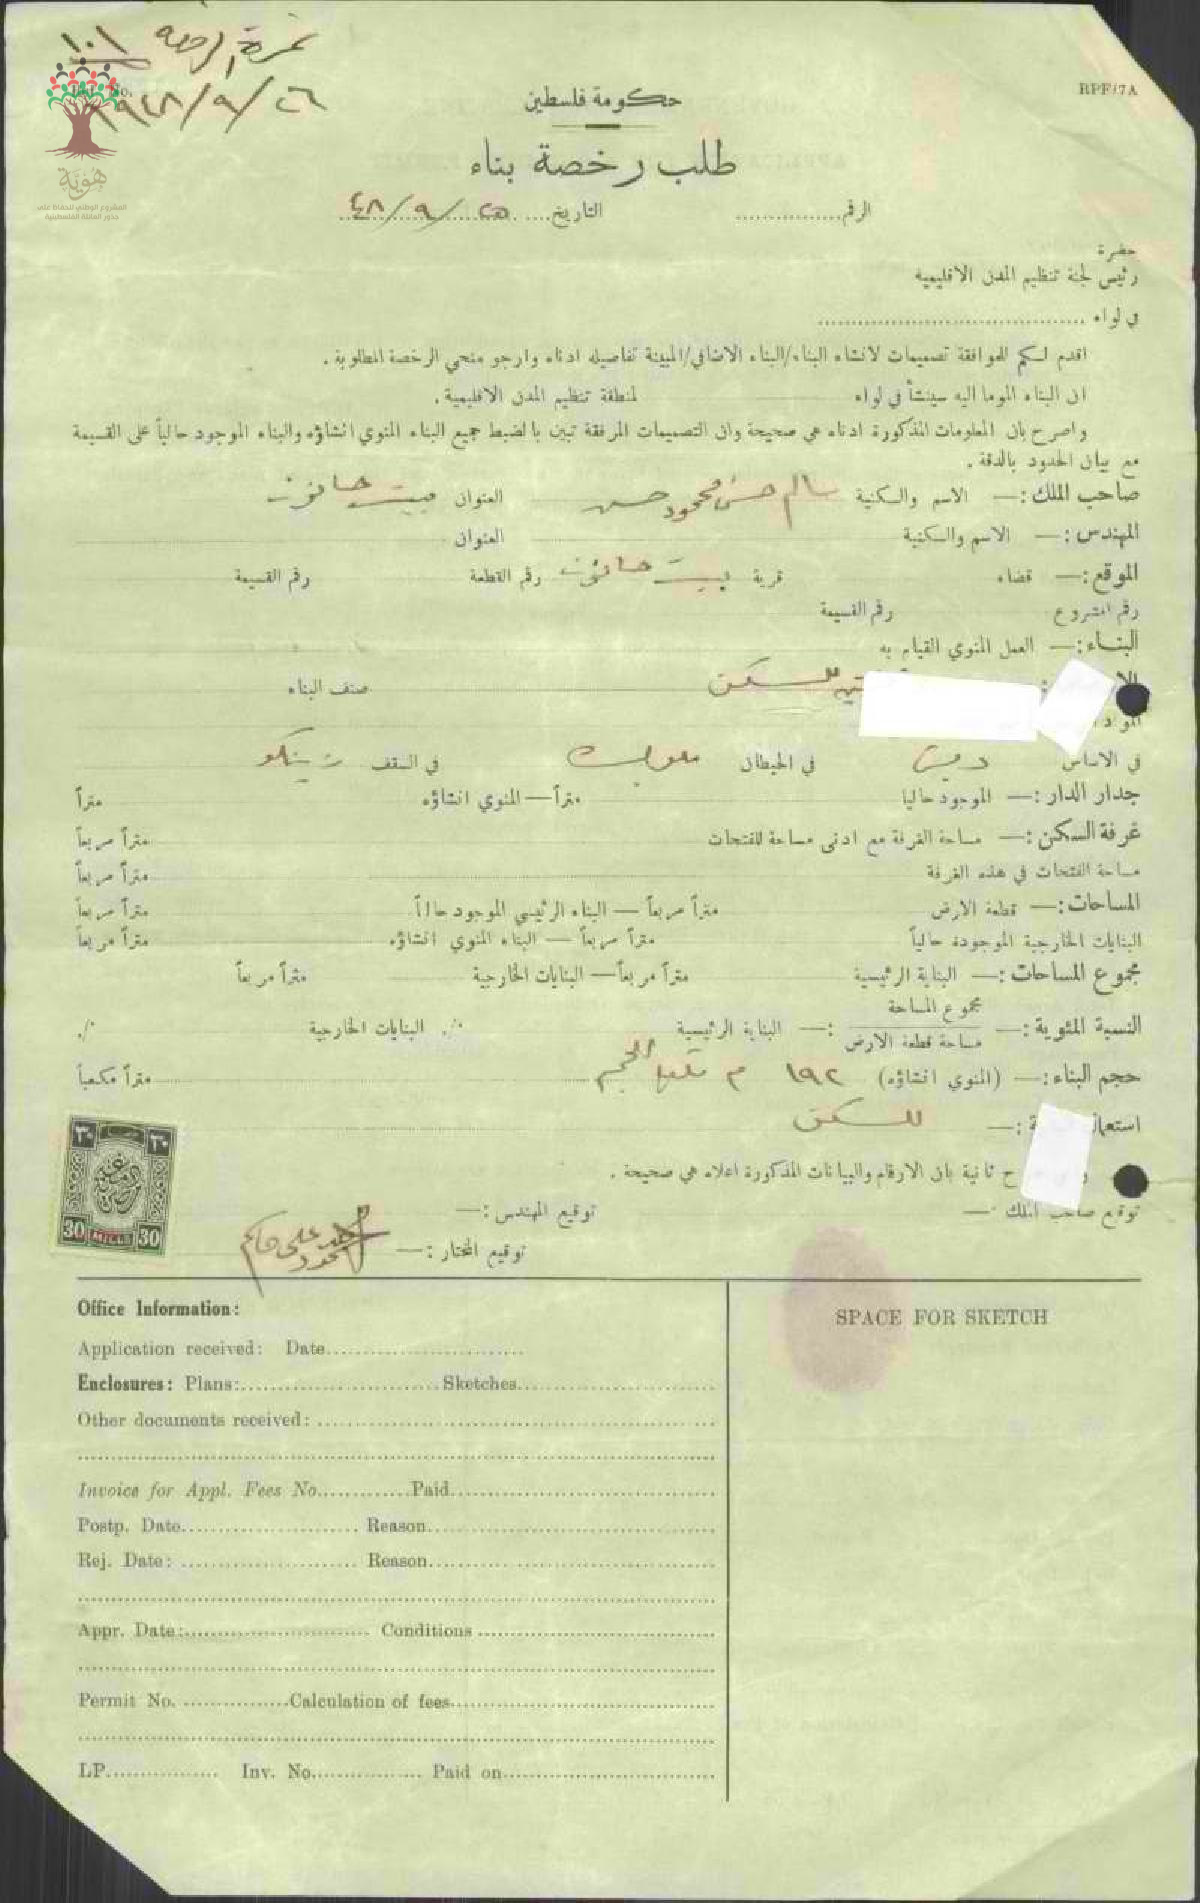 نمرة الرخصة ١٠١
١٩٤٨/٩/٢٦
هوية
المشروع الوطني للحفاظ على
جذور العائلة الفلسطينية
RPF/7A
حكومة فلسطين
طلب رخصة بناء
الرقم................ التاريخ.... ٤٨/٩/٢٥
حضرة
رئيس لجنة تنظيم المدن الاقليمية
في لواء ........................................
اقدم لكم للموافقة تصميمات لانشاء البناء/البناء الاضافي/المبينة تفاصيله ادناه وارجو منحي الرخصة المطلوبة .
ان البناء الموما اليه سينشأ في لواء لمنطقة تنظيم المدن الاقليمية .
واصرح بان المعلومات المذكورة ادناه هي صحيحة وان التصميمات المرفقة تبين بالضبط جميع البناء المنوي انشاؤه والبناء الموجود حالياً على القسيمة
مع بيان الحدود بالدقة .
صاحب الملك :— الاسم والسكنية سالم حسن محمود حسن العنوان بيت حانون
المهندس :— الاسم والسكنية العنوان
الموقع :— قضاء قرية بيت حانون رقم القطعة رقم القسيمة
رقم المشروع رقم القسيمة
البناء :— العمل المنوي القيام به
للسكن صنف البناء
المواد
في الاساس دبش في الحيطان في السقف زينكو
جدار الدار :— الموجود حاليا متراً — المنوي انشاؤه متراً
غرفة السكن :— مساحة الغرفة مع ادنى مساحة للفتحات متراً مربعاً
مساحة الفتحات في هذه الغرفة متراً مربعاً
المساحات :— قطعة الارض متراً مربعاً — البناء الرئيسي الموجود حالاً متراً مربعاً
البنايات الخارجية الموجودة حالياً متراً مربعاً — البناء المنوي انشاؤه متراً مربعاً
مجموع المساحات :— البناية الرئيسية متراً مربعاً — البنايات الخارجية متراً مربعاً
النسبة المئوية :— مجموع المساحة / مساحة قطعة الارض :— البناية الرئيسية ٪. البنايات الخارجية ٪.
حجم البناء :— (المنوي انشاؤه) ١٩٢ م الحجم متراً مكعباً
للسكن
ثانية بان الارقام والبيانات المذكورة اعلاه هي صحيحة .
توقيع صاحب الملك — توقيع المهندس :—
توقيع المختار :—
٣٠ ٣٠
30 MILLS 30
Office Information:
Application received: Date
Enclosures: Plans: Sketches
Other documents received:
Invoice for Appl. Fees No. Paid
Postp. Date Reason
Rej. Date: Reason
Appr. Date: Conditions
Permit No. Calculation of fees
LP. Inv. No. Paid on
SPACE FOR SKETCH